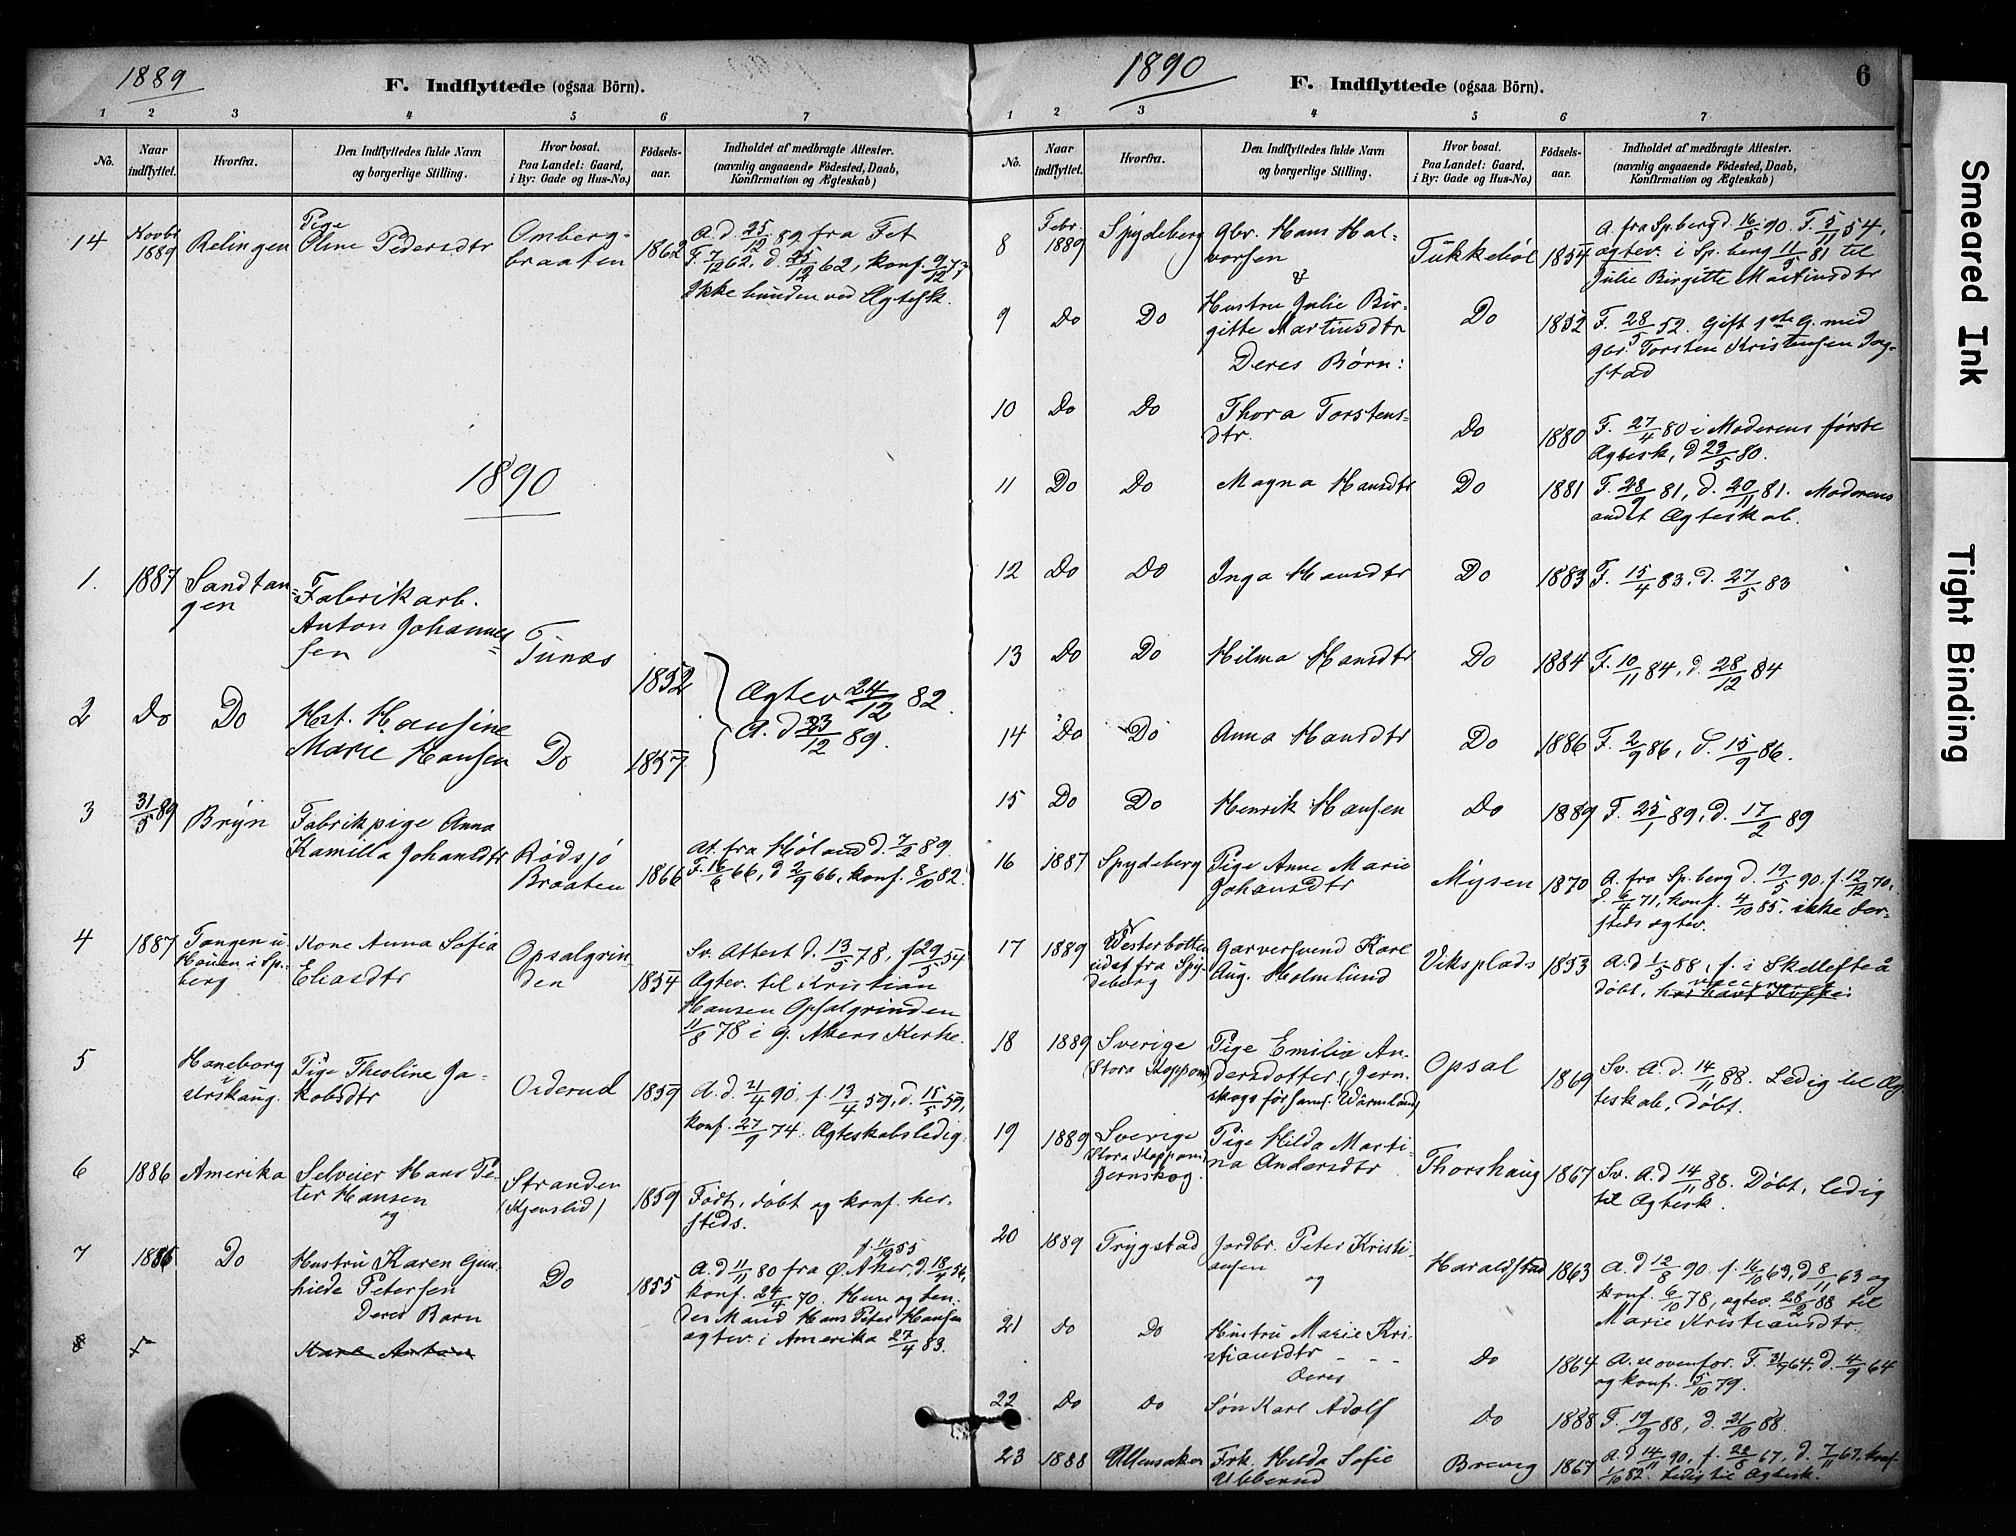 1889
F. Indflyttede (ogsaa Börn).
1 2 3 4 5 6 7
No.
Naar indflyttet.
Hvorfra.
Den Indflyttedes fulde Navn og borgerlige Stilling.
Hvor bosat. Paa Landet: Gaard, i By: Gade og Hus-No.)
Födsels-aar.
Indholdet af medbragte Attester. (navnlig angaaende Födested, Daab, Konfirmation og Ægteskab)
14 Novbr 1889 Relingen Pige Oline Pedersdtr Omberg-braaten 1862 A. d. 25/12 89 fra Fet
F. 7/12 62, d. 25/12 62, konf. 9/12 77
Ikke bunden ved Ægtesk.
1890
1. 1887 Sandtan-gen Fabrikarb.
Anton Johannes-sen Tunæs 1852 Ægtev 24/12 82.
2 Do Do Hst. Hansine
Marie Hansen Do 1857 A. d 23/12 89.
3 31/5 89 Bryn Fabrikpige Anna
Kamilla Johansdtr Rødsjø
Braaten 1866 At. fra Høland d. 7/2 89.
F. 16/6 66, d 2/9 66, konf. 8/10 82.
4 1887 Tangen u.
Houen i Sp.-berg Kone Anna Sofia
Eliasdtr Opsalgrin-den 1854 Sv. Attest d. 13/5 78, f 29/5 54
Ægtev. til Kristian
Hansen Opsalgrinden
11/8 78 i G. Akers Kirke.
5 Haneborg
i Urskaug. Pige Theoline Ja-kobsdtr Orderud 1859 A. d. 21/4 90. f. 13/4 59, d. 15/5 59,
konf. 27/9 74. Ægteskabsledig.
6 1886 Amerika Selveier Hans Pe-ter Hansen
og Stranden
(Kjenslid) 1859 Født, døbt og konf. her-steds.
7 1886 Do Hustru Karen Gun-hilde Petersen
Deres Barn Do 1855 f. 11/9 55
A. d 11/11 80 fra Ø. Aker, d. 18/4 56,
konf. 24/4 70. Hun og hen-des Mand Hans Peter Hansen
ægtev. i Amerika 27/4 83.
8 Karl Anton
1890
F. Indflyttede (ogsaa Börn).
6
1 2 3 4 5 6 7
No.
Naar indflyttet.
Hvorfra.
Den Indflyttedes fulde Navn og borgerlige Stilling.
Hvor bosat. Paa Landet: Gaard, i By: Gade og Hus-No.)
Födsels-aar.
Indholdet af medbragte Attester. (navnlig angaaende Födested, Daab, Konfirmation og Ægteskab)
8 Febr. 1889 Spydeberg Gbr. Hans Hal-vorsen
& Tukkebøl 1854 A. fra Sp.berg d. 16/5 90. F. 5/11 54,
ægtev. i Sp.berg 11/5 81 til
Julie Birgitte Martinsdtr
9 Do Do Hustru Julie Bir-gitte Martinsdtr
Deres Børn: Do 1852 F. 28/5 52. Gift 1ste G. med
Gbr. Torsten Kristensen
10 Do Do Thora Torstens-dtr. Do 1880 F. 27/4 80 i Moderens første
Ægtesk, d 23/5 80.
11 Do Do Magna Hansdtr Do 1881 F. 28/9 81, d. 20/11 81. Moderens
andet Ægteskab.
12 Do Do Inga Hansdtr Do 1883 F. 15/4 83, d. 27/5 83
13 Do Do Hilma Hansdtr Do 1884 F. 10/11 84, d. 28/12 84
14 Do Do Anna Hansdtr Do 1886 F. 2/9 86, d. 15/9 86.
15 Do Do Henrik Hansen Do 1889 F. 25/1 89, d. 17/2 89
16 1887 Spydeberg Pige Anne Marie
Johansdtr Mysen 1870 A. fra Sp.berg d. 19/5 90. f. 12/12 70,
d. 6/4 71, konf. 4/10 85, ikke der-steds ægtev.
17 1889 Westerbotten
sidst fra Spy-deberg Garversvend Karl
Aug. Holmlund Viksplads 1853 A. d 1/5 88, f. i Skellefteå
døbt, vaccineret har havt Kopper
18 1889 Sverige
(Stora Koppom) Pige Emilia An-dersdotter (Jern-skogs församl. Wärmland) Opsal 1869 Sv. A. d. 14/11 88. Ledig til Æg-teskab, døbt.
19 1889 Sverige
(Stora Koppom)
Jernskog. Pige Hilda Marti-na Andersdtr Thorshaug 1867 Sv. A. d 14/11 88. Døbt, ledig
til Ægtesk.
20 1889 Trygstad Jordbr. Peter Kristi-ansen
og Haraldstad 1863 A. d 12/8 90. f. 16/10 63, d 8/11 63 og
konf. 6/10 78, ægtev. 28/2 88 til
Marie Kristiansdtr.
21 Do Do Hustru Marie Kri-stiansdtr - - -
Deres Do 1864 A. se ovenfor. F. 31/7 64, d. 4/9 64
og konf. 5/10 79.
22 Do Do Søn Karl Adolf Do 1888 F. 19/9 88, d. 21/10 88.
23 1888 Ullensaker Frk. Hilda Sofie
Ubberud Brevig 1867 A. d 14/11 90, f. 28/8 67, d. 7/11 67, konf.
1/10 82. Ledig til Ægtesk.
Smeared Ink
Tight Binding